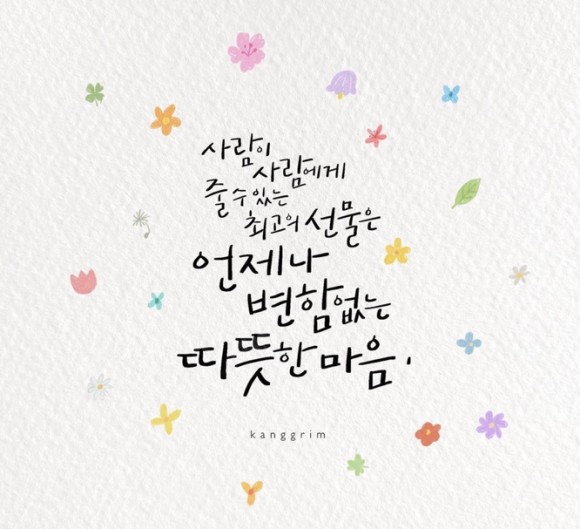 사람이
사람에게
줄 수 있는
최고의 선물은
언제나
변함없는
따뜻한 마음.
kanggrim